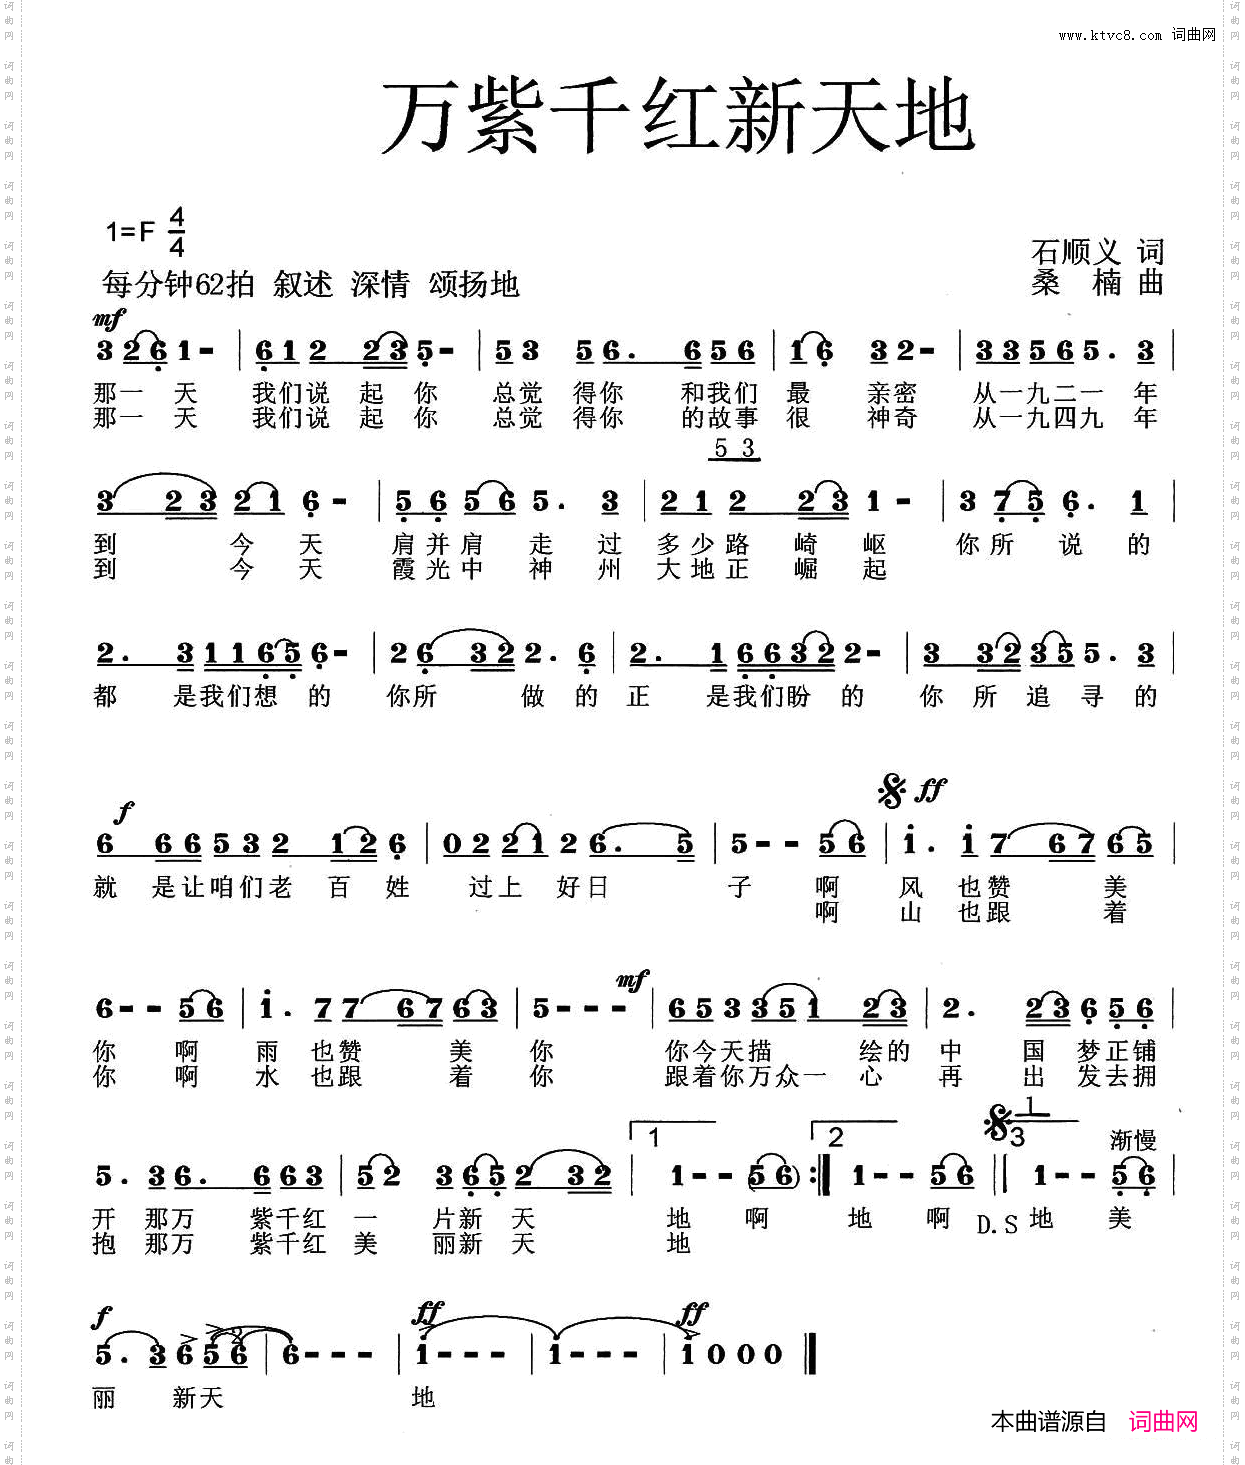 www.ktvc8.com 词曲网
万紫千红新天地
1=F 4/4
石顺义 词
每分钟62拍 叙述 深情 颂扬地
桑楠 曲
mf
3 2 6 1 - | 6 1 2 2 3 5 - | 5 3 5 6. 6 5 6 | 1 6 3 2 - | 3 3 5 6 5. 3 |
那一天 我们说起你 总觉得你 和我们最亲密 从一九二一年
那一天 我们说起你 总觉得你 的故事很神奇 从一九四九年
5 3
3 2 3 2 1 6 - | 5 6 5 6 5. 3 | 2 1 2 2 3 1 - | 3 7 5 6. 1 |
到今天 肩并肩走过 多少路崎岖 你所说的
到今天 霞光中神州 大地正崛起
2. 3 1 1 6 5 6 - | 2 6 3 2 2. 6 | 2. 1 6 6 3 2 2 - | 3 3 2 3 5 5. 3 |
都是我们想的 你所做的 正是我们盼的 你所追寻的
f 𝄋 ff
6 6 6 5 3 2 1 2 6 | 0 2 2 1 2 6. 5 | 5 - - 5 6 | i. i 7 6 7 6 5 |
就是让咱们老百姓 过上好日子 啊 风也赞美
啊 山也跟着
mf
6 - - 5 6 | i. 7 7 6 7 6 3 | 5 - - - | 6 5 3 3 5 1 2 3 | 2. 2 3 6 5 6 |
你啊 雨也赞美你 你今天描绘的中国梦正铺
你啊 水也跟着你 跟着你万众一心再出发去拥
1
1 2 𝄋 3 渐慢
5. 3 6. 6 6 3 | 5 2 3 6 5 2 3 2 | 1 - - (5 6) :‖ 1 - - 5 6 ‖ 1 - - 5 6 |
开那万紫千红一片新天地 啊 地啊 D.S 地美
抱那万紫千红美丽新天地
f ff ff
5. 3 6 5 6 2 | 6 - - - | i - - - | i - - - | i 0 0 0 ‖
丽新天地
本曲谱源自 词曲网